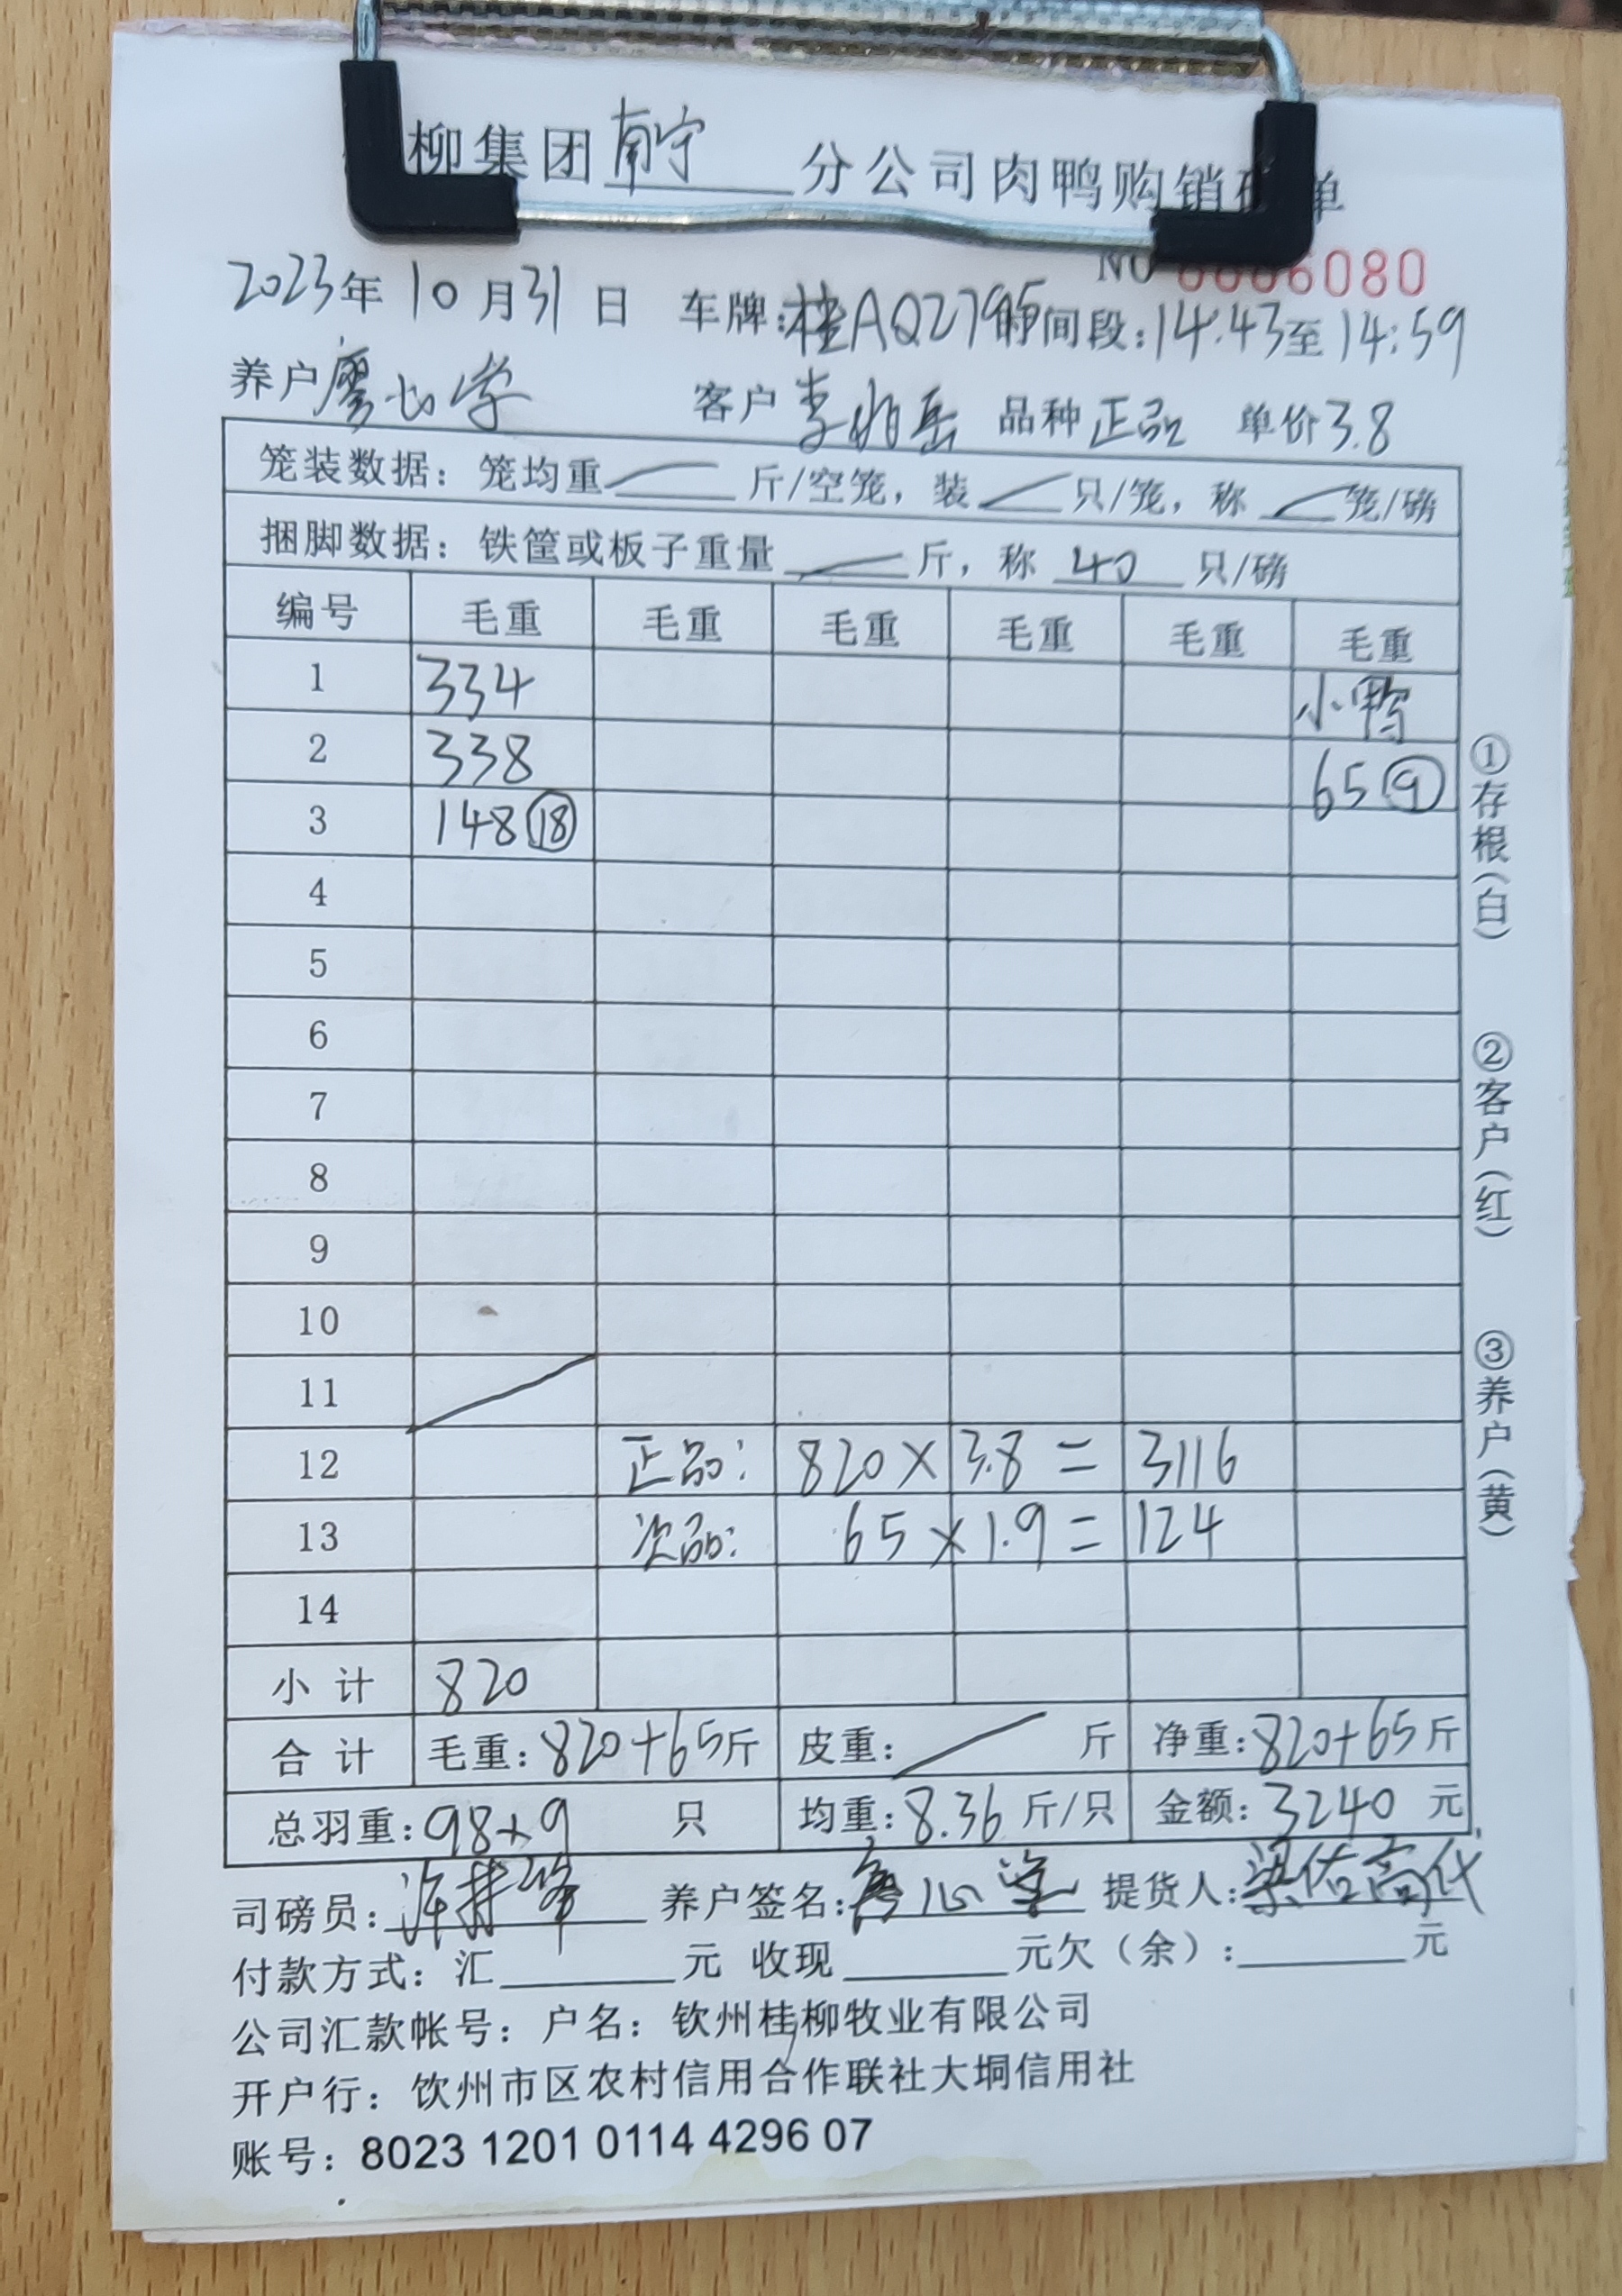 柳集团南宁分公司肉鸭购销 单
NO 6080
2023年10月31日 车牌:桂AQ2795 时间段:14:43至14:59
养户 廖 学 客户 李 岳 品种 正品 单价3.8
笼装数据：笼均重 斤/空笼，装 只/笼，称 笼/磅
捆脚数据：铁筐或板子重量 斤，称 40 只/磅
编号 毛重 毛重 毛重 毛重 毛重 毛重
1 334 小鸭
2 338 65⑨
3 148⑱
4
5
6
7
8
9
10
11
12 正品: 820×3.8=3116
13 次品: 65×1.9=124
14
小计 820
合计 毛重:820+65斤 皮重: 斤 净重:820+65斤
总羽重:98+9 只 均重:8.36斤/只 金额:3240元
司磅员: 养户签名: 提货人:梁佑高代
付款方式：汇 元 收现 元欠（余）: 元
公司汇款帐号：户名：钦州桂柳牧业有限公司
开户行：钦州市区农村信用合作联社大垌信用社
账号：8023 1201 0114 4296 07
①存根(白) ②客户(红) ③养户(黄)